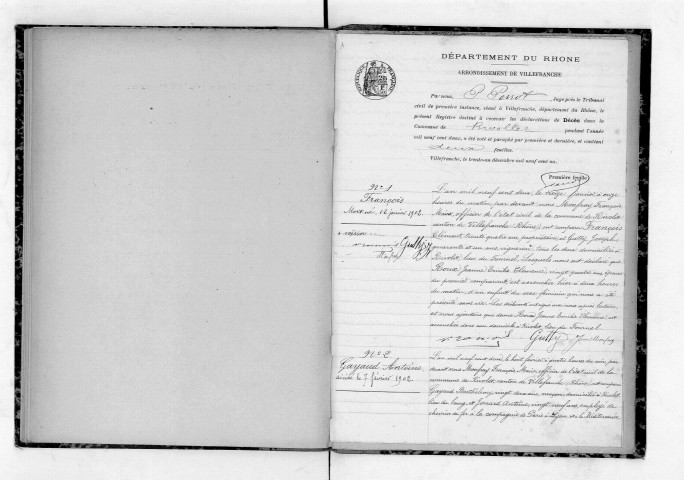 DÉPARTEMENT DU RHONE
ARRONDISSEMENT DE VILLEFRANCHE
Par nous, P. Perrot, Juge près le Tribunal
civil de première instance, séant à Villefranche, département du Rhône, le
présent Registre destiné à recevoir les déclarations de Décès dans la
Commune de Rivolet pendant l'année
mil neuf cent deux, a été coté et paraphé par première et dernière, et contient
deux feuilles.
Villefranche, le trente-un décembre mil neuf cent un.
Première feuille
N° 1
François
Mort-né, 12 janvier 1902.
L'an mil neuf cent deux, le treize janvier à onze
heures du matin, par devant nous Monfray François
Marie, officier de l'état civil de la commune de Rivolet
canton de Villefranche (Rhône), ont comparu François
Clément, trente quatre ans, propriétaire, et Guitty Joseph,
quarante et un ans, vigneron, tous les deux domiciliés à
Rivolet, lieu du Tournel, lesquels nous ont déclaré que
Roux Jeanne Emilie Claudine, vingt quatre ans, épouse
du premier comparant, est accouchée hier à deux heures
du matin, d'un enfant du sexe féminin qui nous a été
présenté sans vie. Les déclarants ont signé avec nous après lecture,
et nous ajoutons que dame Roux Jeanne Emilie Claudine est
accouchée dans son domicile à Rivolet, lieu du Tournel
Guitty
N° 2
Gayaud Antoine
décédé le 7 février 1902
L'an mil neuf cent deux, le huit février à quatre heures du soir, par
devant nous Monfray François Marie, officier de l'état civil de la
commune de Rivolet, canton de Villefranche, Rhône, ont comparu
Gayaud Barthélemy, vingt deux ans, maçon, domicilié à Rivolet
lieu du bourg, et Jonard Antoine, vingt neuf ans, employé de
chemin de fer à la compagnie de Paris à Lyon et à la Méditerranée